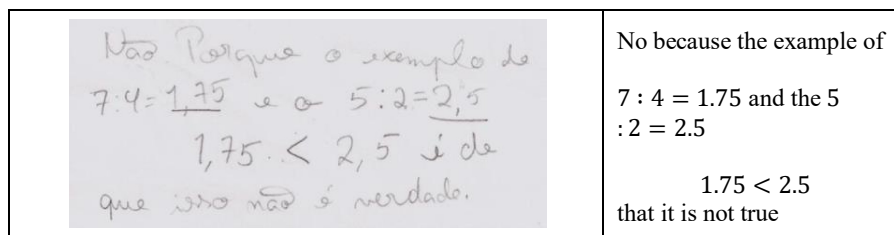 Não. Porque o exemplo de
7:4=1,75 e o 5:2=2,5
1,75 < 2,5 i de
que isso não é verdade.
No because the example of
7 : 4 = 1.75 and the 5
: 2 = 2.5
1.75 < 2.5
that it is not true